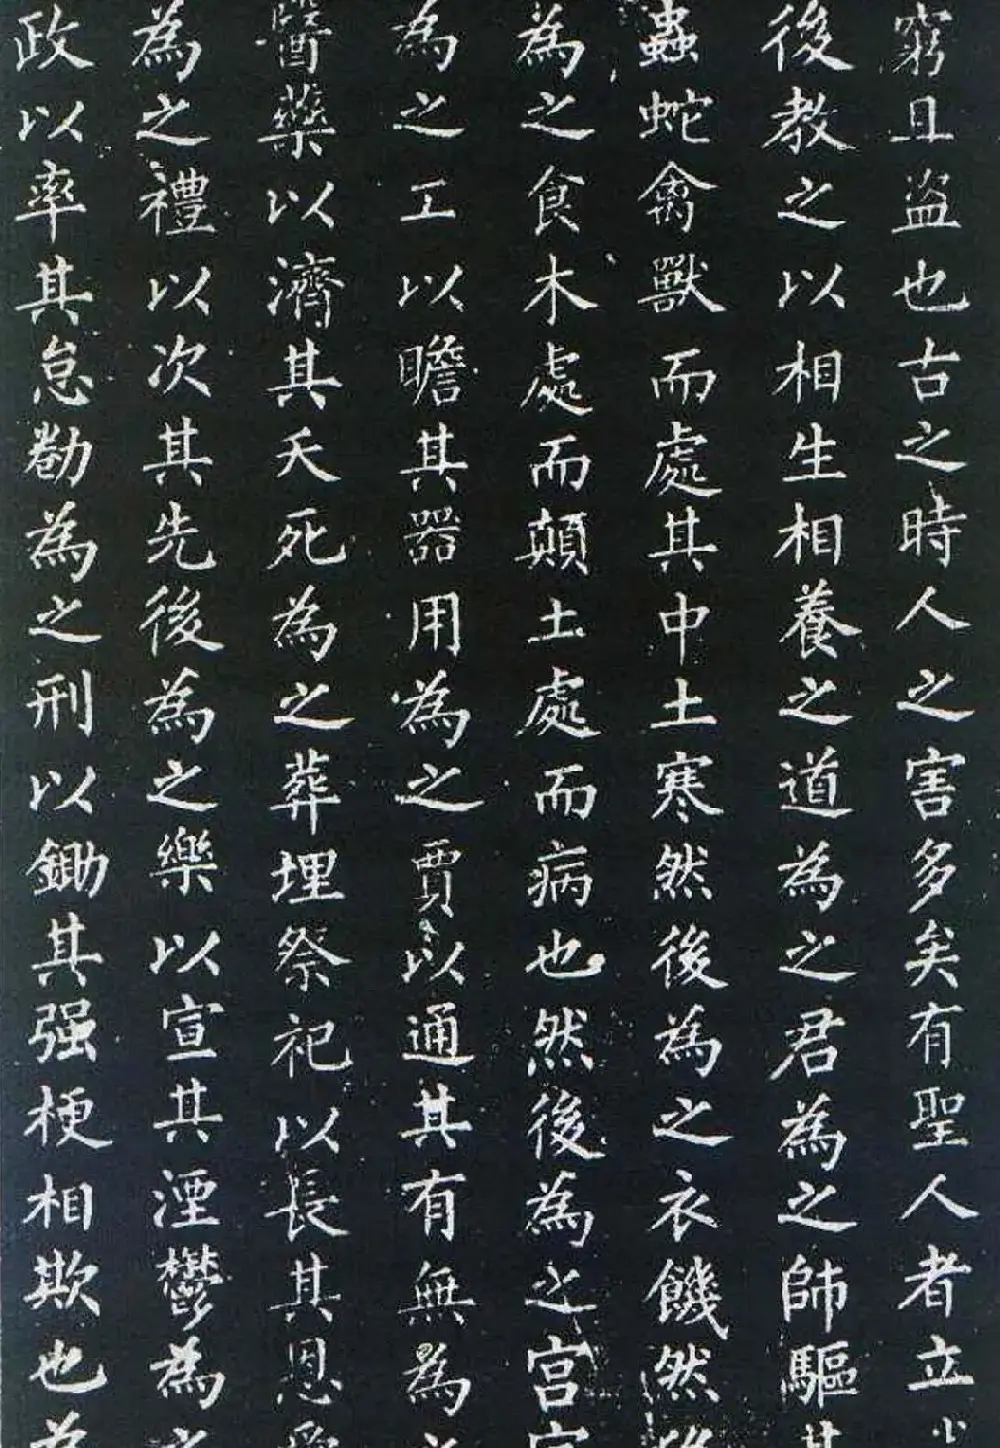 窮且盜也古之時人之害多矣有聖人者立
後教之以相生相養之道為之君為之師驅其
蟲蛇禽獸而處其中土寒然後為之衣饑然後
為之食木處而顛土處而病也然後為之宮室
為之工以瞻其器用為之賈以通其有無為之
醫藥以濟其夭死為之葬埋祭祀以長其恩愛
為之禮以次其先後為之樂以宣其湮鬱為之
政以率其怠勌為之刑以鋤其强梗相欺也為